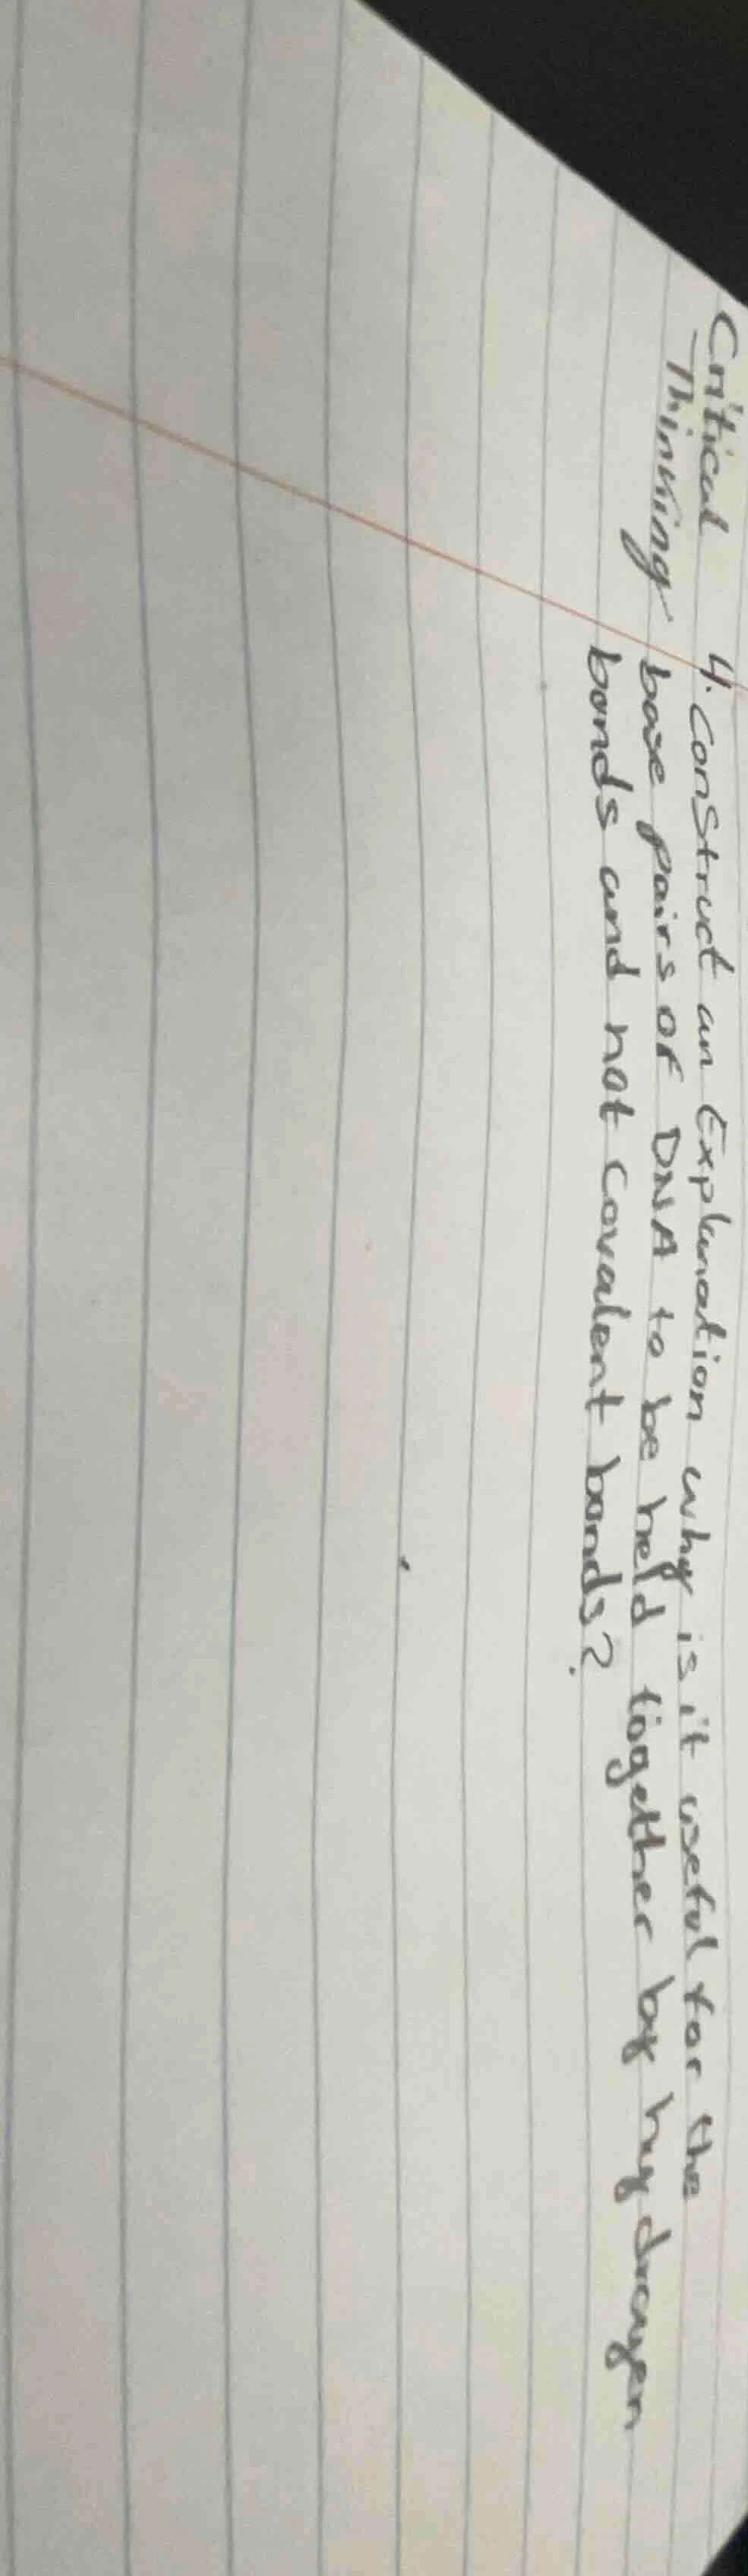 Critical
Thinking
4. Construct an Explanation why is it useful for the
base pairs of DNA to be held together by hydrogen
bonds and not covalent bonds?